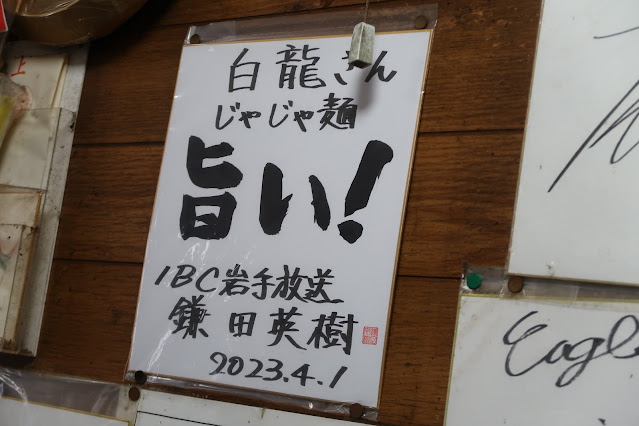 白龍さん
じゃじゃ麺
旨い!
IBC岩手放送
鎌田英樹
2023.4.1
上
Eagle